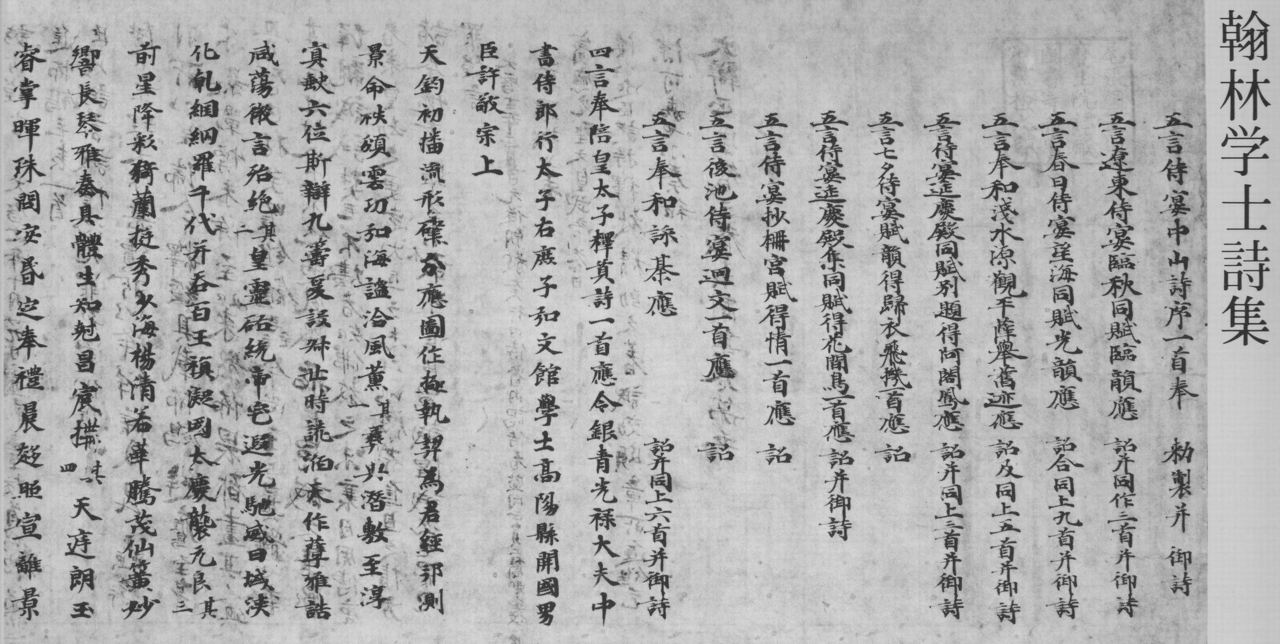 翰林学士詩集
五言侍宴中山詩序一首奉　勅製并御詩
五言遼東侍宴臨秋同賦臨韻應　詔并同作三首并御詩
五言春日侍宴望海同賦光韻應　詔合同上九首并御詩
五言奉和淺水源觀平薛舉舊迹應　詔及同上五首并御詩
五言侍宴延慶殿同賦別題得阿閣鳳應　詔并同上三首并御詩
五言七夕侍宴賦韻得歸衣飛機一首應　詔
五言侍宴延慶殿集同賦得花間鳥一首應　詔并御詩
五言侍宴抄柵宮賦得情一首應　詔
五言後池侍宴迴文一首應　詔
五言奉和詠棊應　詔并同上六首并御詩
四言奉陪皇太子釋奠詩一首應令銀青光祿大夫中
書侍郎行太子右庶子弘文館學士高陽縣開國男
臣許敬宗上
天鈞初播流形肇分應圖作極執契為君經邦測
景命秩頒雲功和海謐洽風薰其一彝訓潛敷至淳
寘缺六位斯辯九疇爰設舛訛時詭淪夭作蕁雅誥
咸蕩微言殆絕其二皇靈祐統帝宅遐光馳威日域浹
化乹綱網羅千代并吞百王禎凝岡太慶襲元良其三
前星降彩猗蘭挺秀少海楊清若華騰茂仙籥妙
響長琴雅奏具體生知尅昌宸構其四天庭朗玉
睿掌暉珠問安昏定奉禮晨趍照宣離景